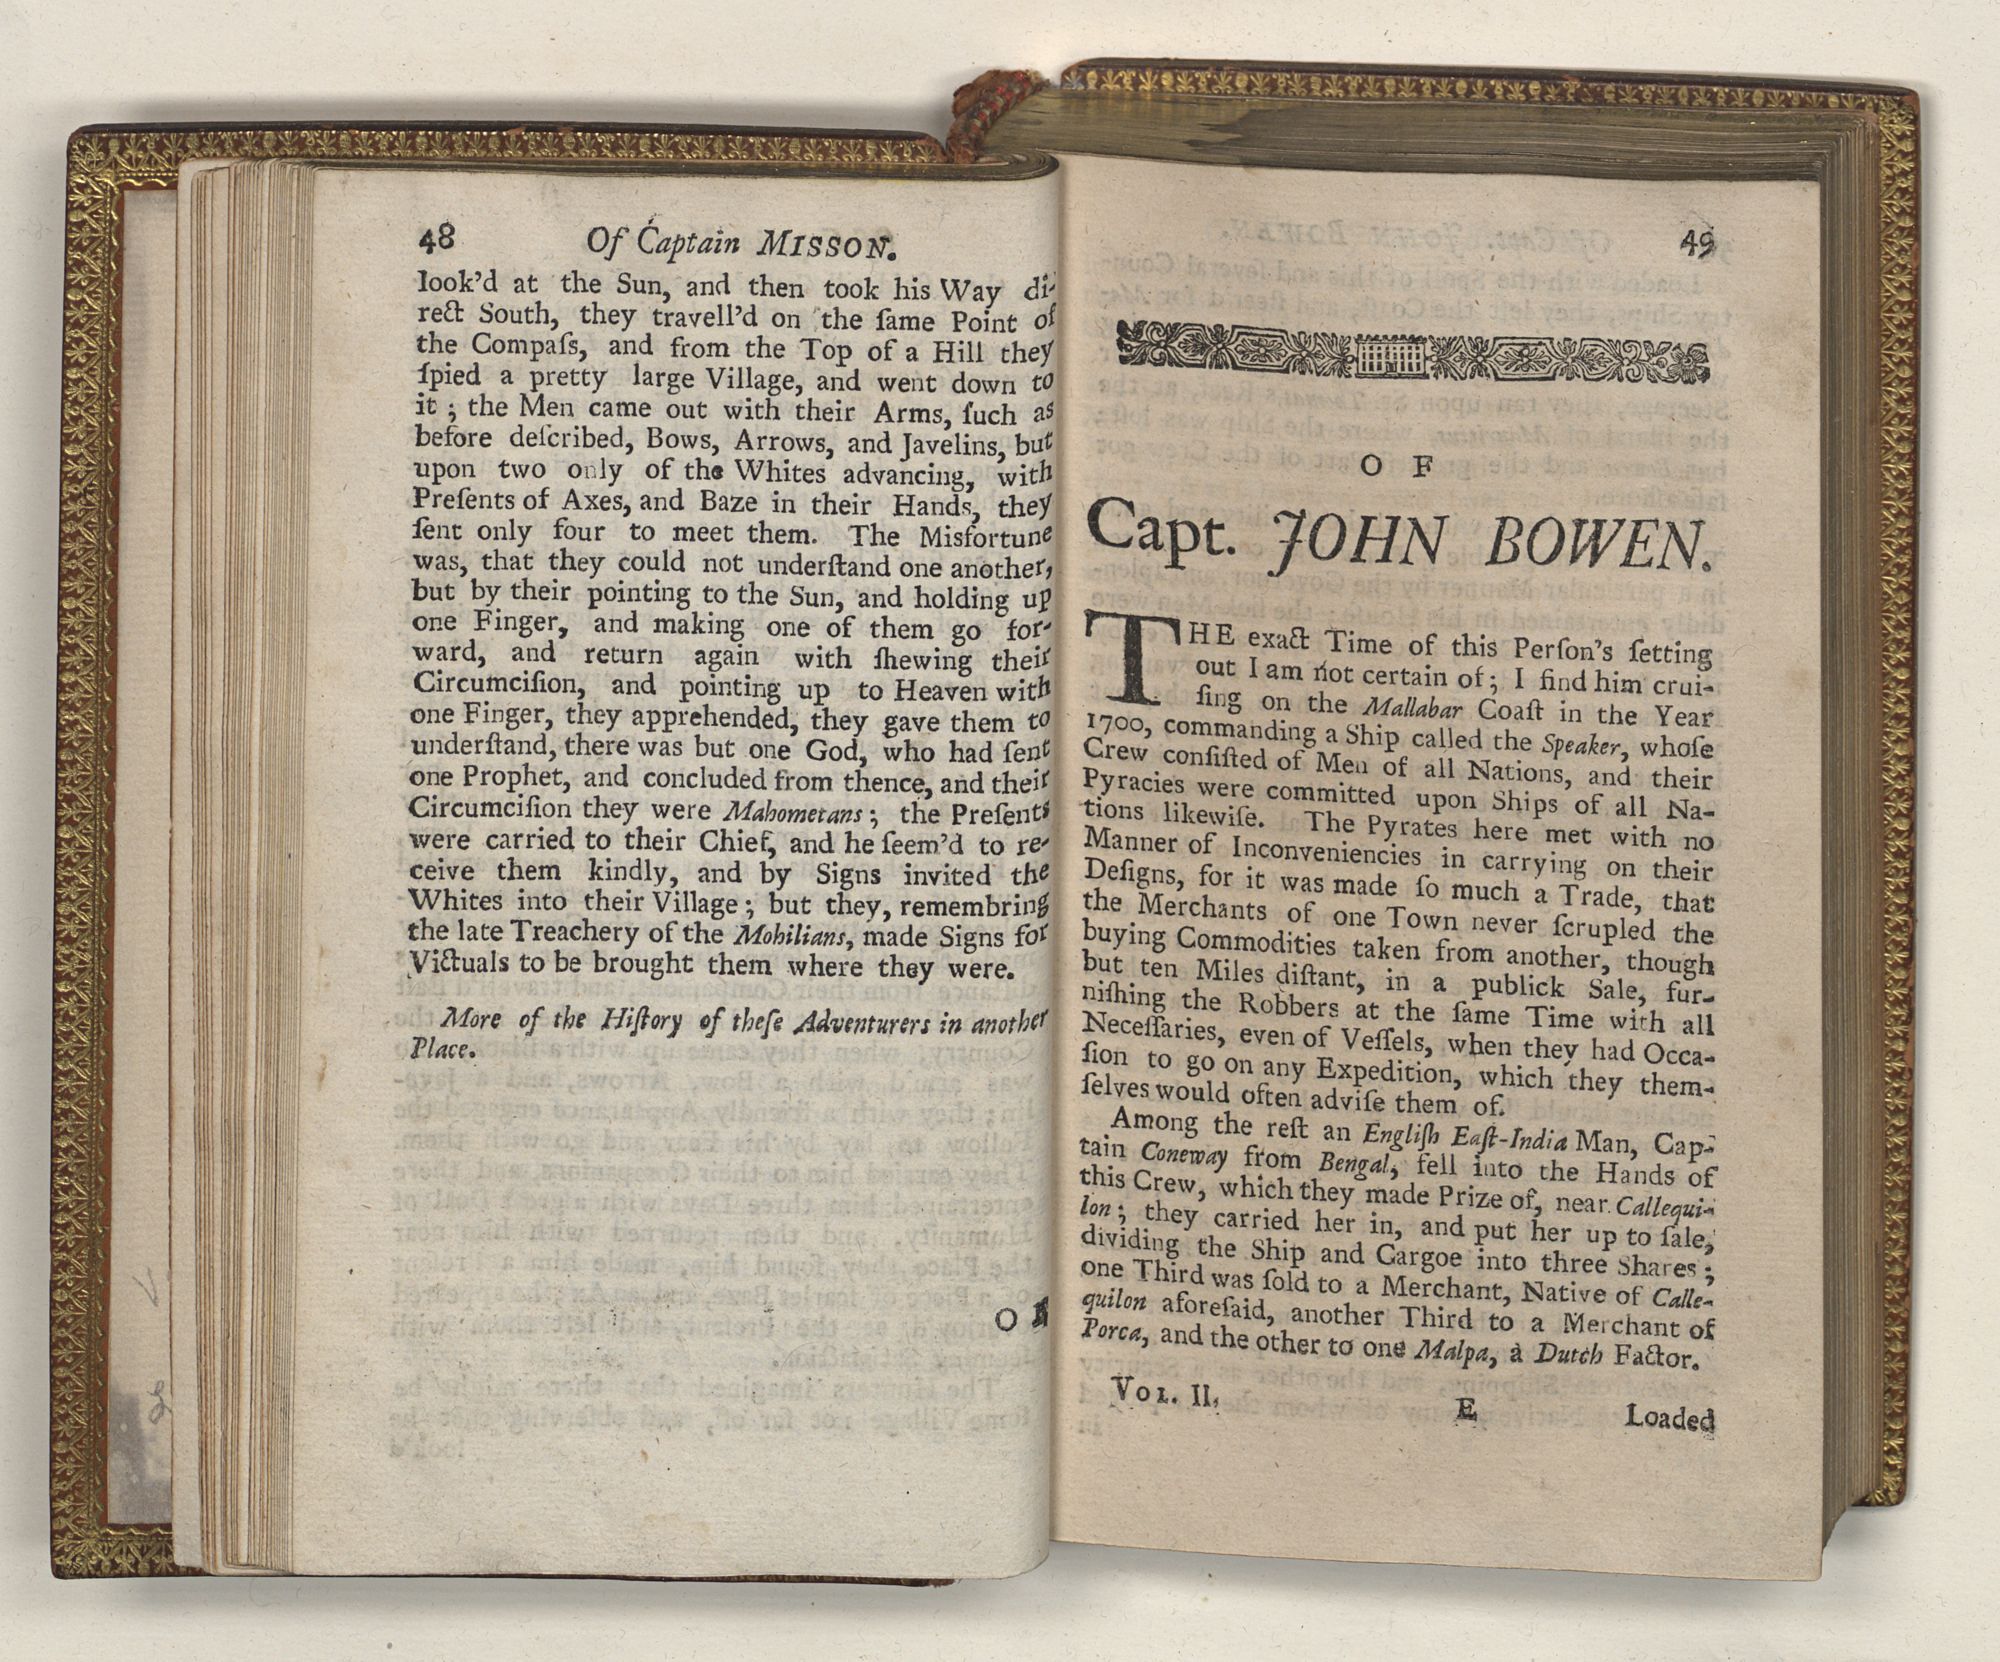 48 Of Captain MISSON.
look'd at the Sun, and then took his Way di-
rect South, they travell'd on the ſame Point of
the Compaſs, and from the Top of a Hill they
ſpied a pretty large Village, and went down to
it; the Men came out with their Arms, ſuch as
before deſcribed, Bows, Arrows, and Javelins, but
upon two only of the Whites advancing, with
Preſents of Axes, and Baze in their Hands, they
ſent only four to meet them. The Misfortune
was, that they could not underſtand one another,
but by their pointing to the Sun, and holding up
one Finger, and making one of them go for-
ward, and return again with ſhewing their
Circumciſion, and pointing up to Heaven with
one Finger, they apprehended, they gave them to
underſtand, there was but one God, who had ſent
one Prophet, and concluded from thence, and their
Circumciſion they were Mahometans; the Preſents
were carried to their Chief, and he ſeem'd to re-
ceive them kindly, and by Signs invited the
Whites into their Village; but they, remembring
the late Treachery of the Mohilians, made Signs for
Victuals to be brought them where they were.
More of the Hiſtory of theſe Adventurers in another
Place.
OF
49
OF
Capt. JOHN BOWEN.
THE exact Time of this Perſon's ſetting
out I am not certain of; I find him crui-
ſing on the Mallabar Coaſt in the Year
1700, commanding a Ship called the Speaker, whoſe
Crew conſiſted of Men of all Nations, and their
Pyracies were committed upon Ships of all Na-
tions likewiſe. The Pyrates here met with no
Manner of Inconveniencies in carrying on their
Deſigns, for it was made ſo much a Trade, that
the Merchants of one Town never ſcrupled the
buying Commodities taken from another, though
but ten Miles diſtant, in a publick Sale, fur-
niſhing the Robbers at the ſame Time with all
Neceſſaries, even of Veſſels, when they had Occa-
ſion to go on any Expedition, which they them-
ſelves would often adviſe them of.
Among the reſt an Engliſh Eaſt-India Man, Cap-
tain Coneway from Bengal, fell into the Hands of
this Crew, which they made Prize of, near Callequi-
lon; they carried her in, and put her up to ſale,
dividing the Ship and Cargoe into three Shares;
one Third was ſold to a Merchant, Native of Calle-
quilon aforeſaid, another Third to a Merchant of
Porca, and the other to one Malpa, a Dutch Factor.
VOL. II. E Loaded